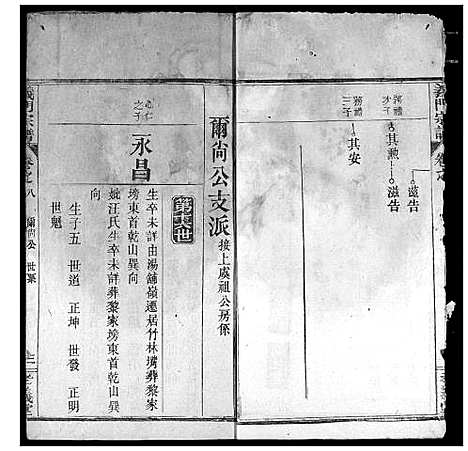 義門宗譜
蔣禮
次子
其勲
滋告
遠告
蔣禮
三子
其安
爾尚公支派
接上虞祖公房係
心仁
之子
永昌
生卒未詳由湯舖嶺遷居竹林塆葬黎家
塝東首乾山巽向
妣汪氏生卒未詳葬黎家塝東首乾山巽
向
生子五 世道 正坤 世發 正明
世魁
義門宗譜
卷之八
爾尚公
世系